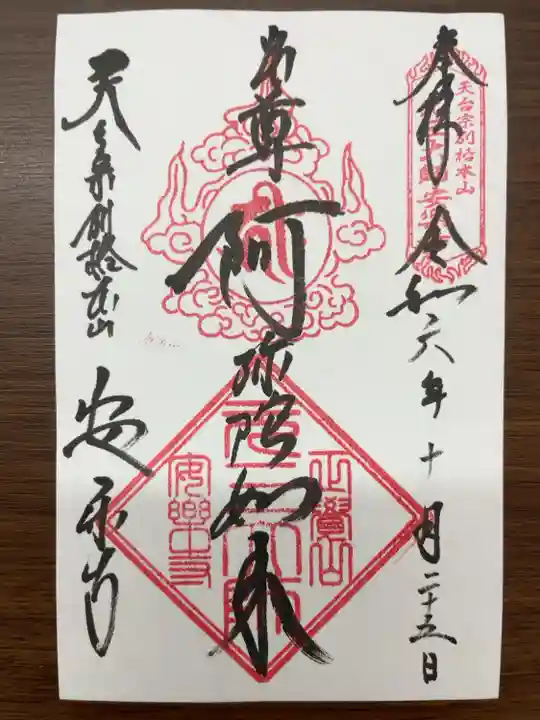 奉拝 令和六年十月二十五日
天台宗別格本山
本尊 阿弥陀如来
正覺山
安樂寺
天台宗別格本山
安楽寺